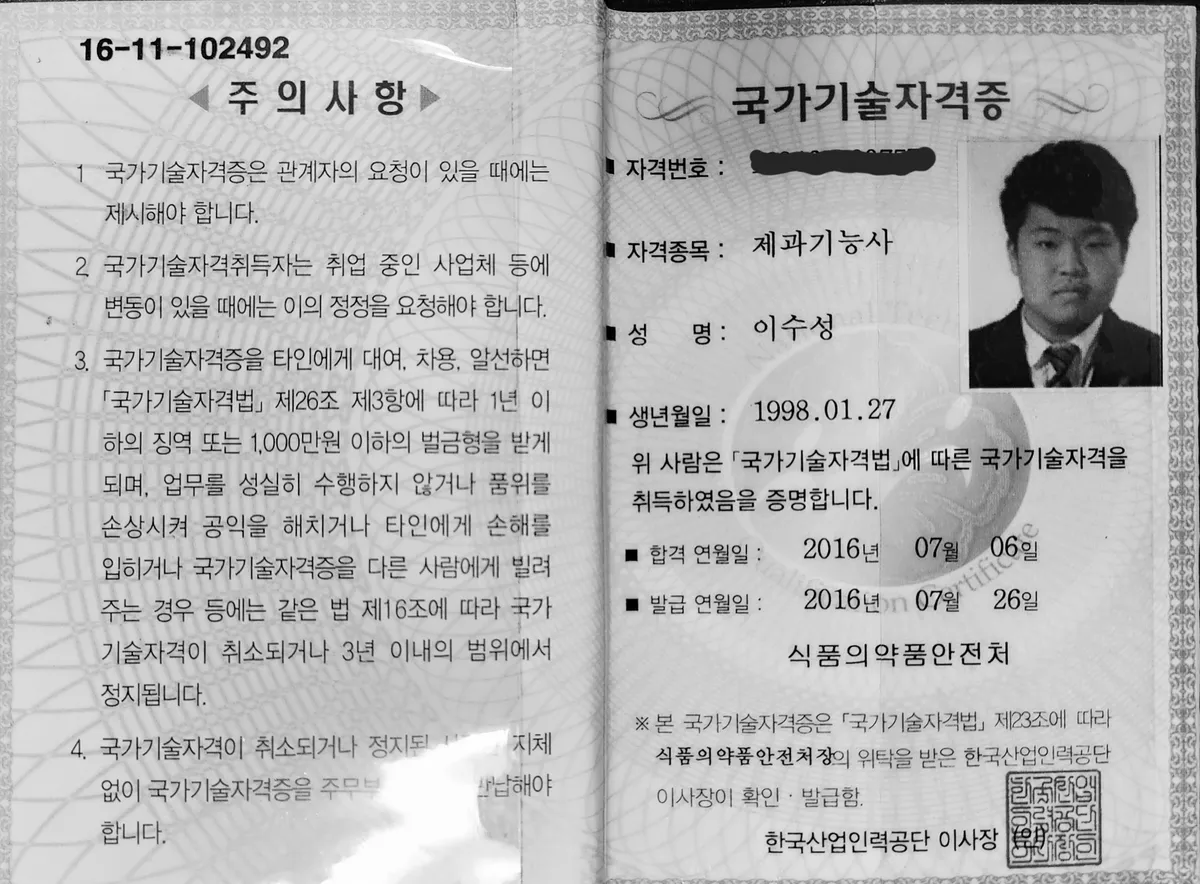 16-11-102492
◀ 주 의 사 항 ▶
1 국가기술자격증은 관계자의 요청이 있을 때에는
제시해야 합니다.
2. 국가기술자격취득자는 취업 중인 사업체 등에
변동이 있을 때에는 이의 정정을 요청해야 합니다.
3. 국가기술자격증을 타인에게 대여, 차용, 알선하면
「국가기술자격법」 제26조 제3항에 따라 1년 이
하의 징역 또는 1,000만원 이하의 벌금형을 받게
되며, 업무를 성실히 수행하지 않거나 품위를
손상시켜 공익을 해치거나 타인에게 손해를
입히거나 국가기술자격증을 다른 사람에게 빌려
주는 경우 등에는 같은 법 제16조에 따라 국가
기술자격이 취소되거나 3년 이내의 범위에서
정지됩니다.
4. 국가기술자격이 취소되거나 정지된 지체
없이 국가기술자격증을 주무부 반납해야
합니다.
국가기술자격증
■ 자격번호 :
■ 자격종목 : 제과기능사
■ 성 명 : 이수성
■ 생년월일 : 1998.01.27
위 사람은 「국가기술자격법」에 따른 국가기술자격을
취득하였음을 증명합니다.
■ 합격 연월일 : 2016년 07월 06일
■ 발급 연월일 : 2016년 07월 26일
식품의약품안전처
※ 본 국가기술자격증은 「국가기술자격법」 제23조에 따라
식품의약품안전처장의 위탁을 받은 한국산업인력공단
이사장이 확인 · 발급함.
한국산업인력공단 이사장 (인)